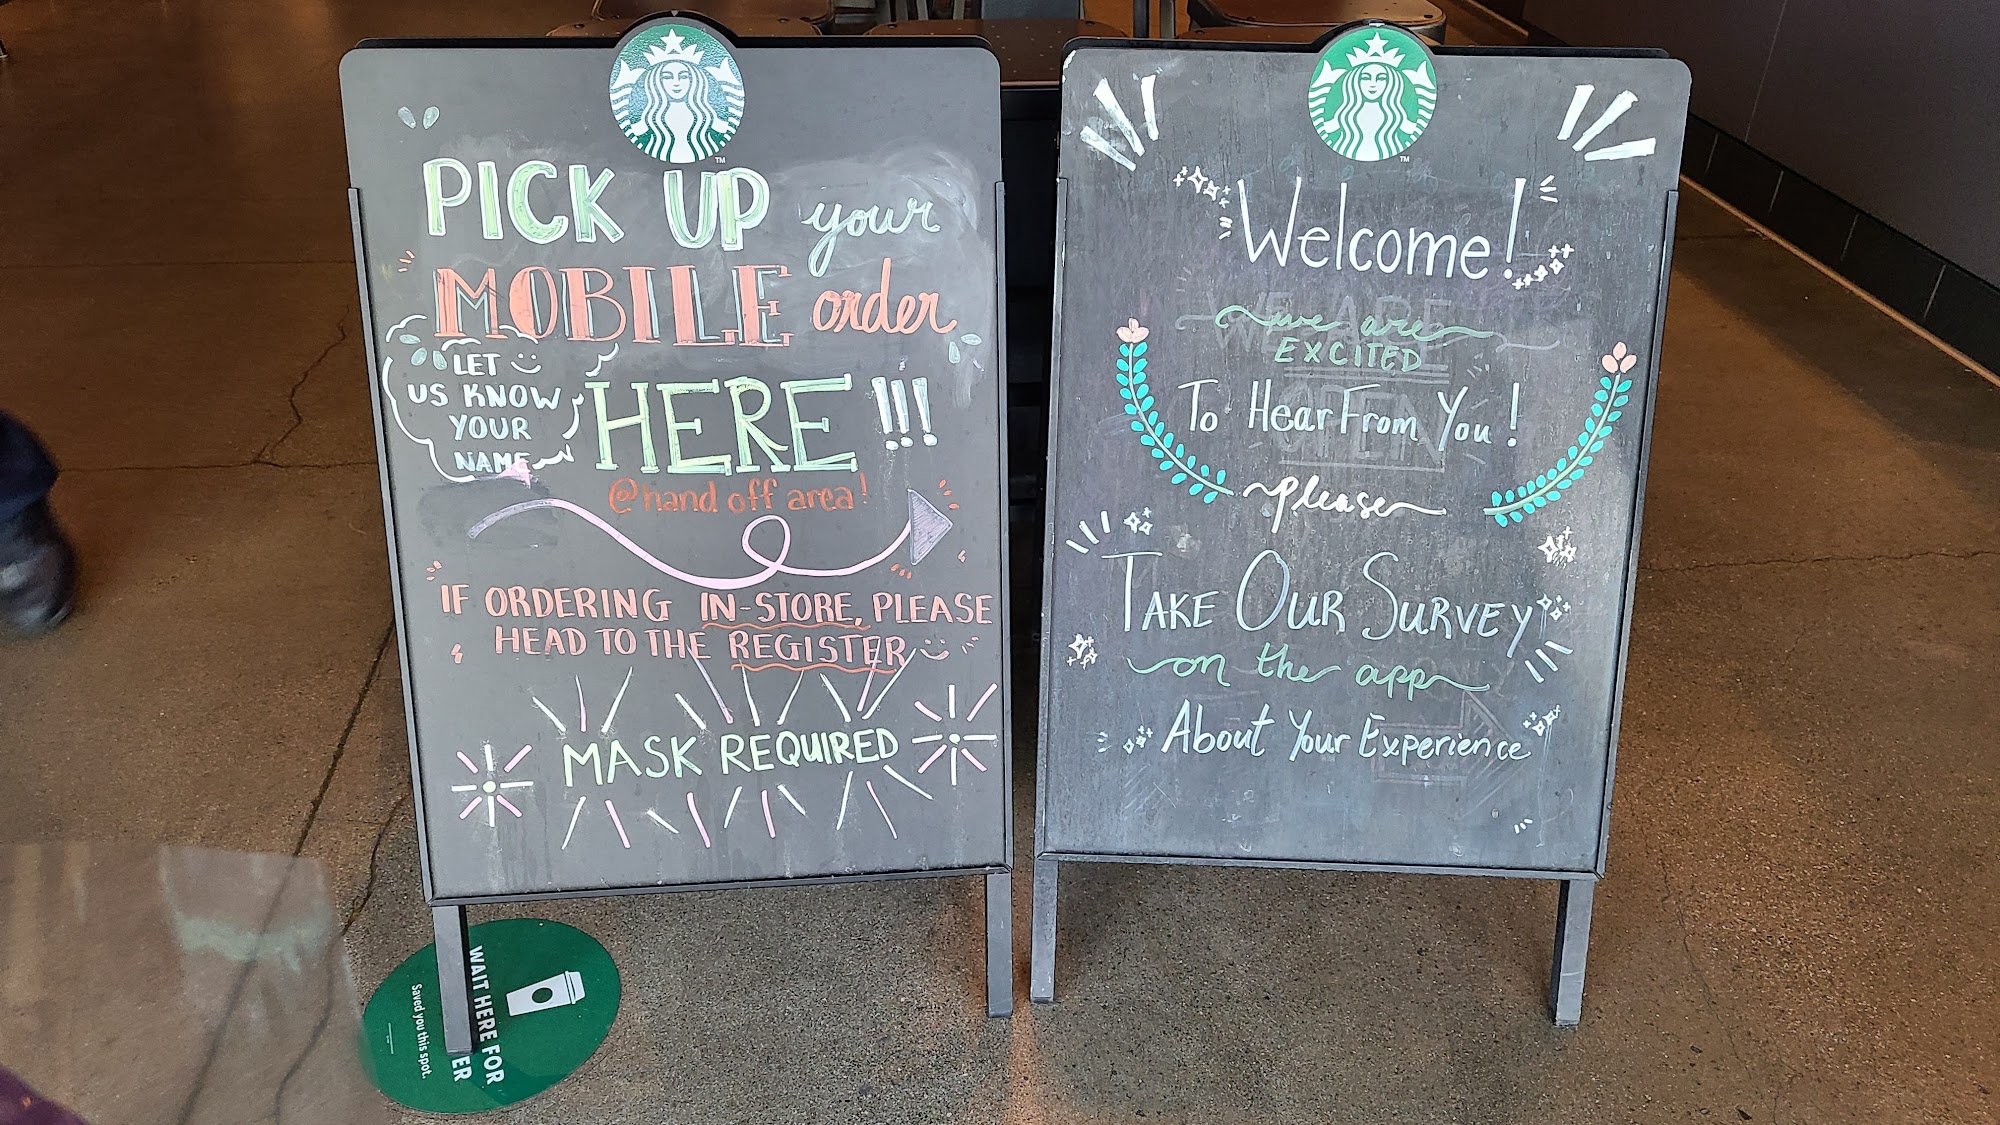 PICK UP your
MOBILE order
LET
US KNOW
YOUR
NAME
HERE!!!
@hand off area!
IF ORDERING IN-STORE, PLEASE
HEAD TO THE REGISTER
MASK REQUIRED
TM
Welcome!
we are
EXCITED
To Hear From You!
please
TAKE OUR SURVEY
on the app
About Your Experience
TM
WE ARE
OPEN
WAIT HERE FOR
ER
Saved you this spot.